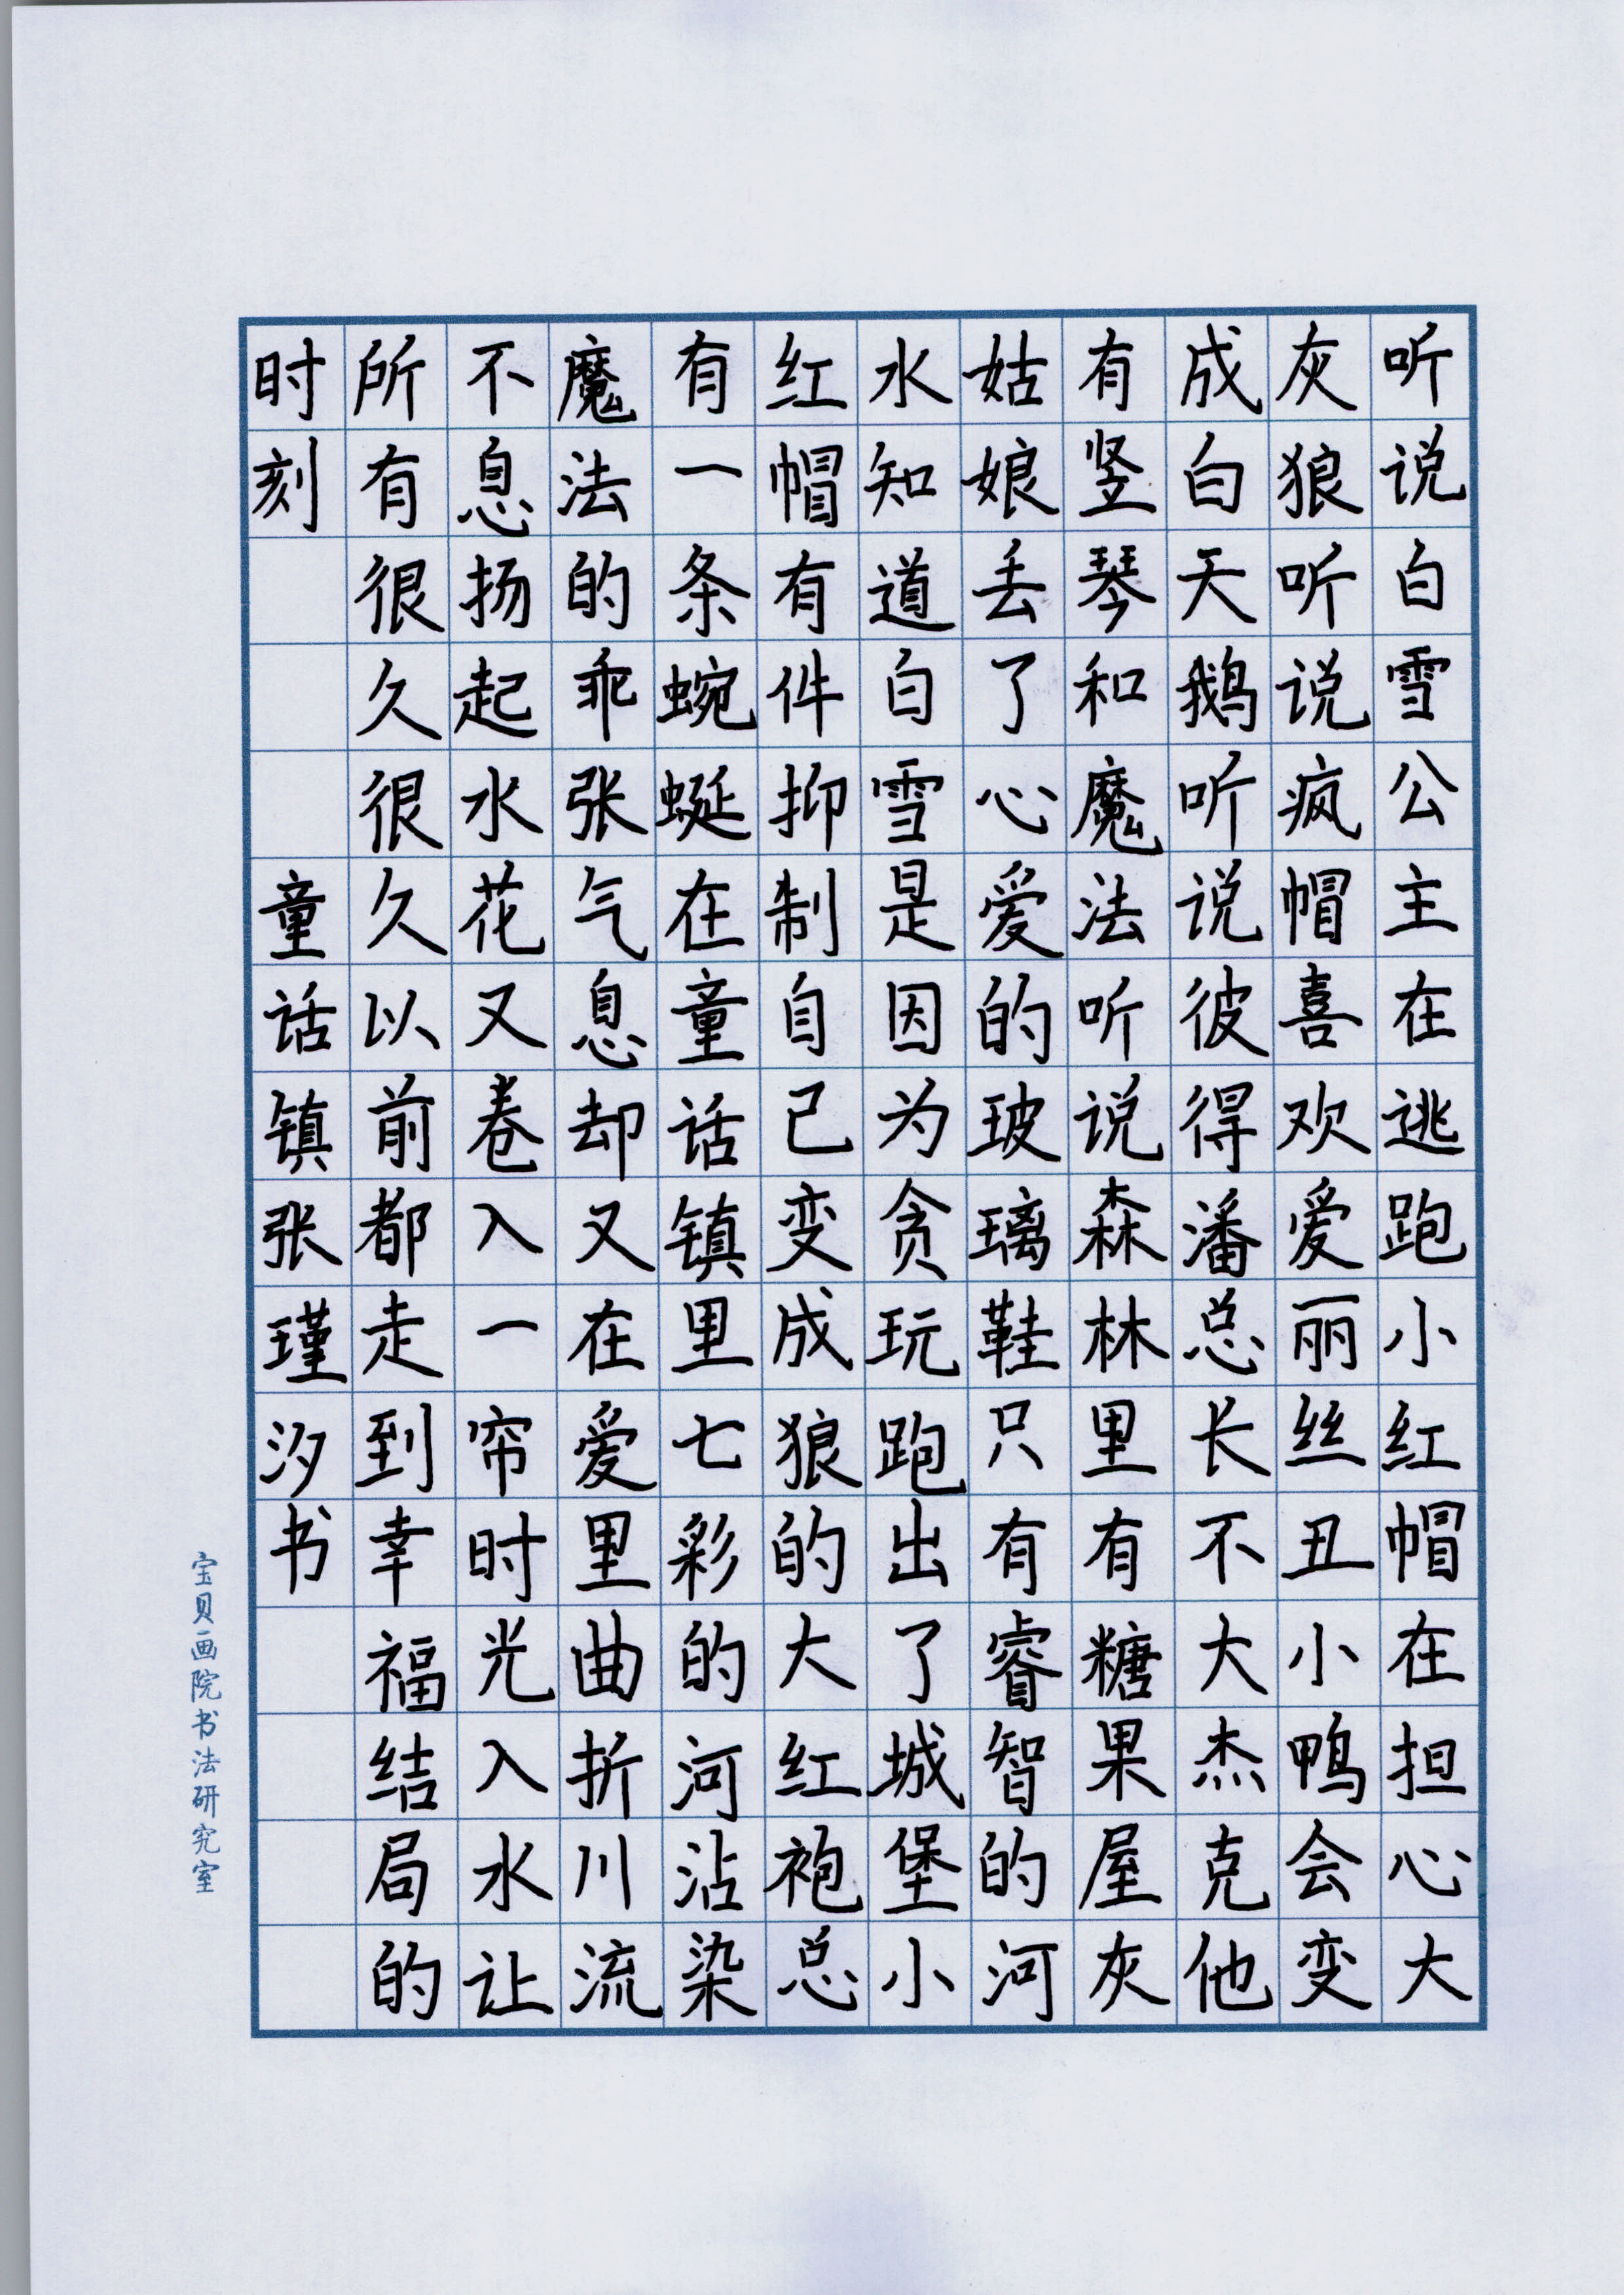 听说白雪公主在逃跑小红帽在担心大
灰狼听说疯帽喜欢爱丽丝丑小鸭会变
成白天鹅听说彼得潘总长不大杰克他
有竖琴和魔法听说森林里有糖果屋灰
姑娘丢了心爱的玻璃鞋只有睿智的河
水知道白雪是因为贪玩跑出了城堡小
红帽有件抑制自己变成狼的大红袍总
有一条蜿蜒在童话镇里七彩的河沾染
魔法的乖张气息却又在爱里曲折川流
不息扬起水花又卷入一帘时光入水让
所有很久很久以前都走到幸福结局的
时刻 童话镇张瑾汐书
宝贝画院书法研究室